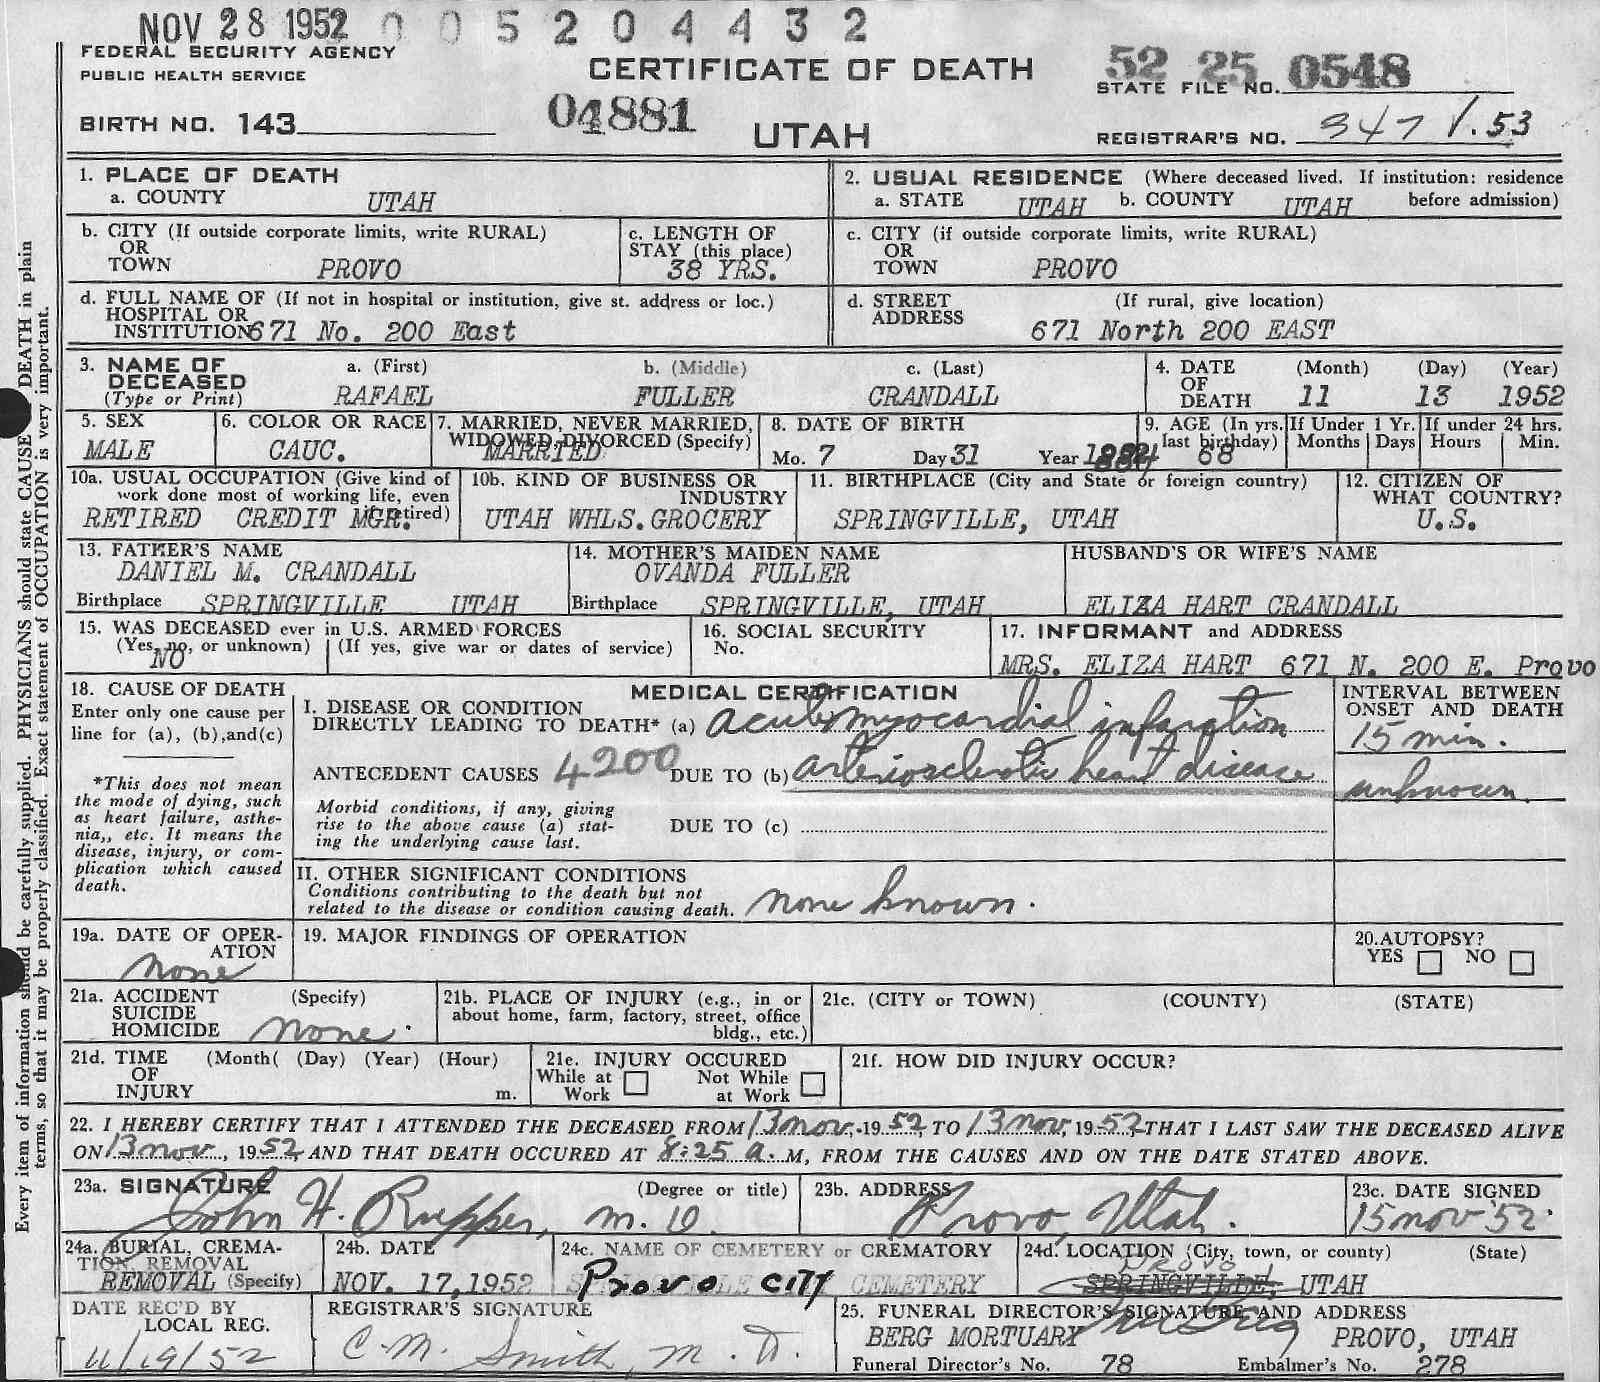 NOV 28 1952 0 0 5 2 0 4 4 3 2
FEDERAL SECURITY AGENCY
PUBLIC HEALTH SERVICE
CERTIFICATE OF DEATH
52 25 0548
STATE FILE NO.
BIRTH NO. 143
04881
UTAH
REGISTRAR'S NO. 347 1.53
1. PLACE OF DEATH
a. COUNTY UTAH
2. USUAL RESIDENCE (Where deceased lived. If institution: residence before admission)
a. STATE UTAH b. COUNTY UTAH
b. CITY (If outside corporate limits, write RURAL)
OR
TOWN PROVO
c. LENGTH OF
STAY (this place)
38 YRS.
c. CITY (if outside corporate limits, write RURAL)
OR
TOWN PROVO
d. FULL NAME OF (If not in hospital or institution, give st. address or loc.)
HOSPITAL OR
INSTITUTION 671 No. 200 East
d. STREET (If rural, give location)
ADDRESS
671 North 200 EAST
3. NAME OF
DECEASED
(Type or Print)
a. (First) b. (Middle) c. (Last)
RAFAEL FULLER CRANDALL
4. DATE
OF
DEATH
(Month) (Day) (Year)
11 13 1952
5. SEX
MALE
6. COLOR OR RACE
CAUC.
7. MARRIED, NEVER MARRIED,
WIDOWED, DIVORCED (Specify)
MARRIED
8. DATE OF BIRTH
Mo. 7 Day 31 Year
9. AGE (In yrs.
last birthday)
68
If Under 1 Yr.
Months Days
If under 24 hrs.
Hours Min.
10a. USUAL OCCUPATION (Give kind of
work done most of working life, even
if retired)
RETIRED CREDIT MGR.
10b. KIND OF BUSINESS OR
INDUSTRY
UTAH WHLS. GROCERY
11. BIRTHPLACE (City and State or foreign country)
SPRINGVILLE, UTAH
12. CITIZEN OF
WHAT COUNTRY?
U.S.
13. FATHER'S NAME
DANIEL M. CRANDALL
Birthplace SPRINGVILLE UTAH
14. MOTHER'S MAIDEN NAME
OVANDA FULLER
Birthplace SPRINGVILLE, UTAH
HUSBAND'S OR WIFE'S NAME
ELIZA HART CRANDALL
15. WAS DECEASED ever in U.S. ARMED FORCES
(Yes, no, or unknown) (If yes, give war or dates of service)
NO
16. SOCIAL SECURITY
No.
17. INFORMANT and ADDRESS
MRS. ELIZA HART 671 N. 200 E. Provo
18. CAUSE OF DEATH
Enter only one cause per
line for (a), (b), and (c)
*This does not mean
the mode of dying, such
as heart failure, asthe-
nia,, etc. It means the
disease, injury, or com-
plication which caused
death.
MEDICAL CERTIFICATION
I. DISEASE OR CONDITION
DIRECTLY LEADING TO DEATH* (a) acute myocardial infarction
ANTECEDENT CAUSES 4200 DUE TO (b) arteriosclerotic heart disease
Morbid conditions, if any, giving
rise to the above cause (a) stat-
ing the underlying cause last.
DUE TO (c)
II. OTHER SIGNIFICANT CONDITIONS
Conditions contributing to the death but not
related to the disease or condition causing death. none known.
INTERVAL BETWEEN
ONSET AND DEATH
15 min.
unknown.
19a. DATE OF OPER-
ATION
none
19. MAJOR FINDINGS OF OPERATION
20. AUTOPSY?
YES NO
21a. ACCIDENT (Specify)
SUICIDE
HOMICIDE none.
21b. PLACE OF INJURY (e.g., in or
about home, farm, factory, street, office
bldg., etc.)
21c. (CITY or TOWN) (COUNTY) (STATE)
21d. TIME (Month( (Day) (Year) (Hour)
OF
INJURY m.
21e. INJURY OCCURED
While at Work Not While at Work
21f. HOW DID INJURY OCCUR?
22. I HEREBY CERTIFY THAT I ATTENDED THE DECEASED FROM 13 nov, 1952, TO 13 nov, 1952, THAT I LAST SAW THE DECEASED ALIVE
ON 13 nov, 1952, AND THAT DEATH OCCURED AT 8:25 a. M, FROM THE CAUSES AND ON THE DATE STATED ABOVE.
23a. SIGNATURE (Degree or title)
John H. Rupper, M.D.
23b. ADDRESS
Provo, Utah.
23c. DATE SIGNED
15 nov '52.
24a. BURIAL, CREMA-
TION, REMOVAL
REMOVAL (Specify)
24b. DATE
NOV. 17, 1952
24c. NAME OF CEMETERY or CREMATORY
Provo City CEMETERY
24d. LOCATION (City, town, or county) (State)
PROVO
SPRINGVILLE, UTAH
DATE REC'D BY
LOCAL REG.
11/19/52
REGISTRAR'S SIGNATURE
C. M. Smith, M. D.
25. FUNERAL DIRECTOR'S SIGNATURE AND ADDRESS
BERG MORTUARY PROVO, UTAH
Funeral Director's No. 78 Embalmer's No. 278
Every item of information should be carefully supplied. PHYSICIANS should state CAUSE DEATH in plain
terms, so that it may be properly classified. Exact statement of OCCUPATION is very important.